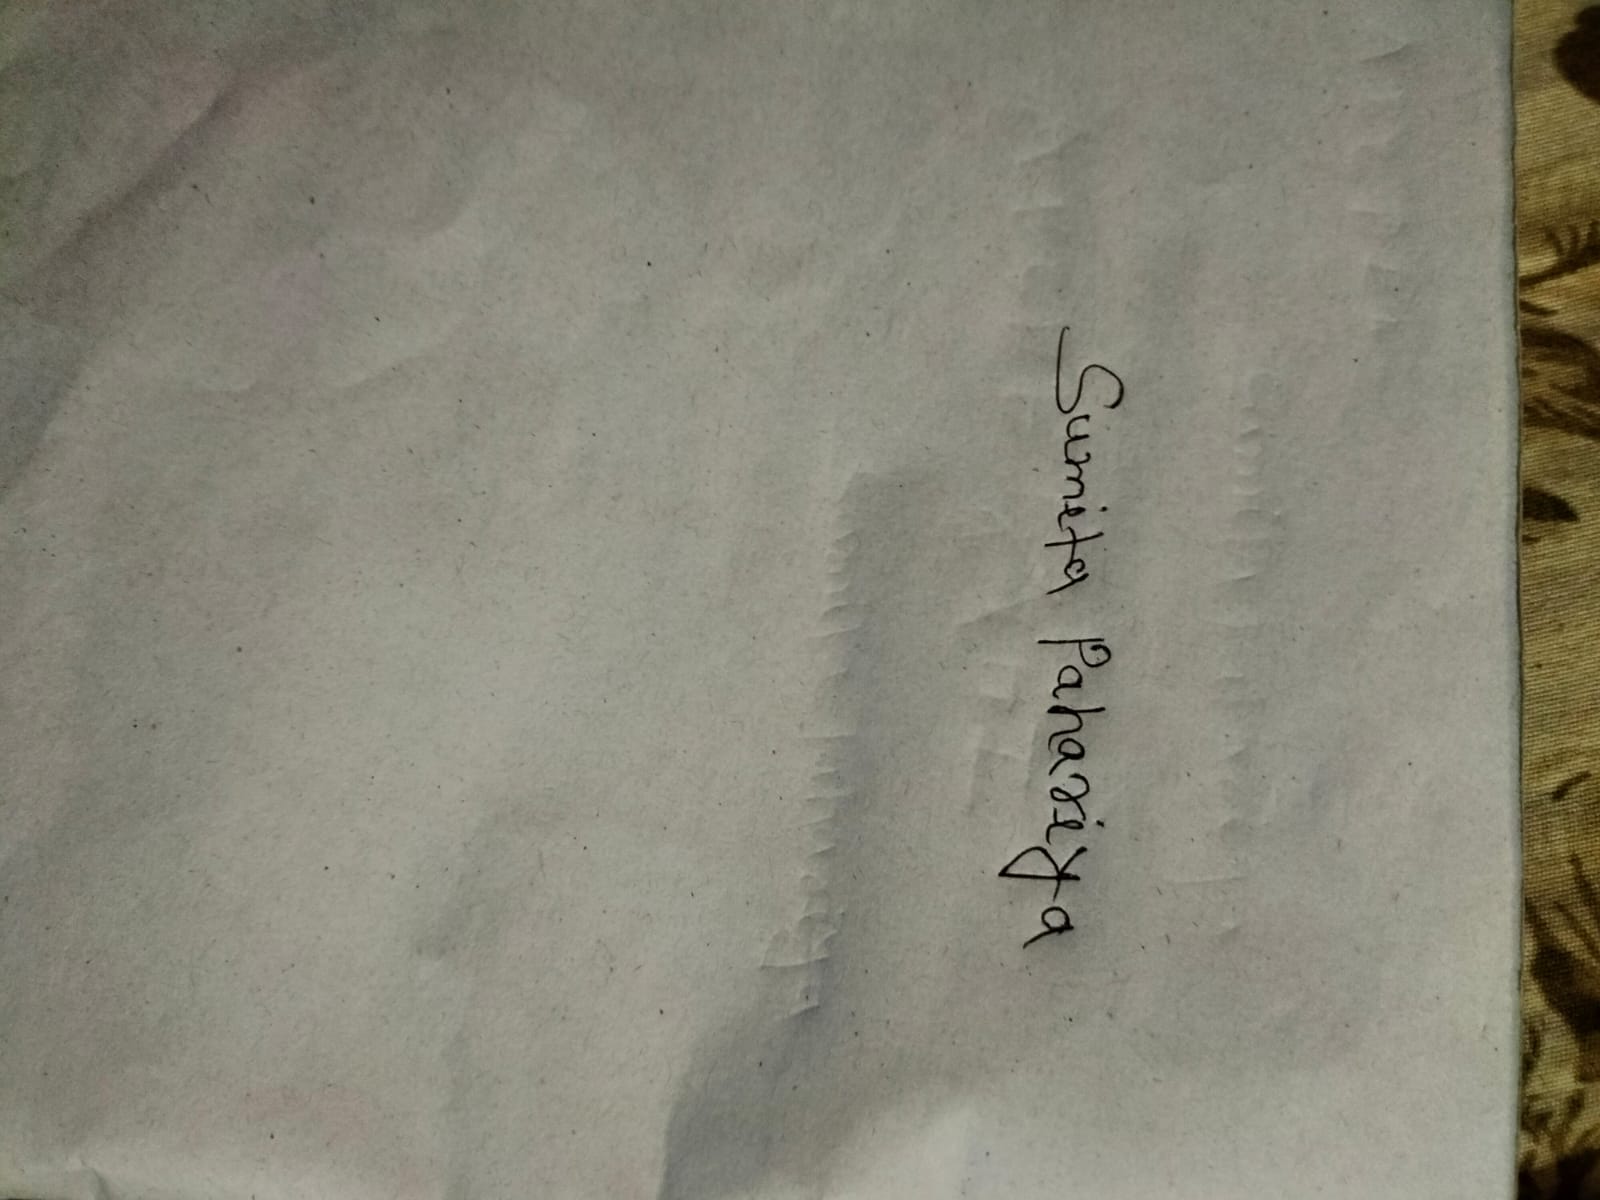 Sumita Pahariya